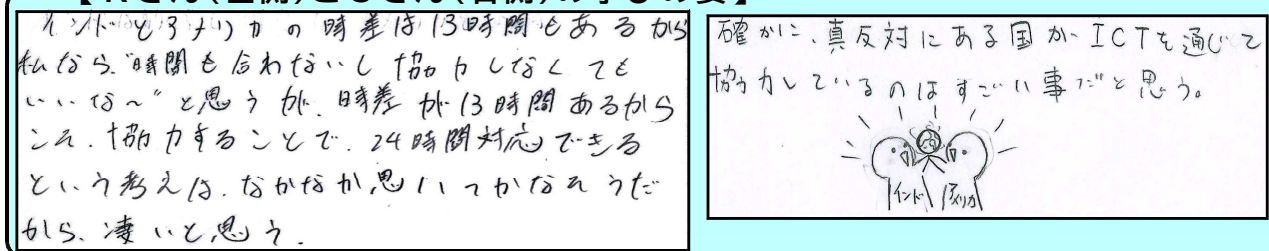 インドとアメリカの時差は13時間もあるから
私なら、"時間も合わないし協力しなくても
いいな～"と思うが、時差が13時間あるから
こそ、協力することで、24時間対応できる
という考えは、なかなか思いつかなそうだ
から、凄いと思う。
確かに、真反対にある国がICTを通じて
協力しているのはすごい事だと思う。
インド アメリカ